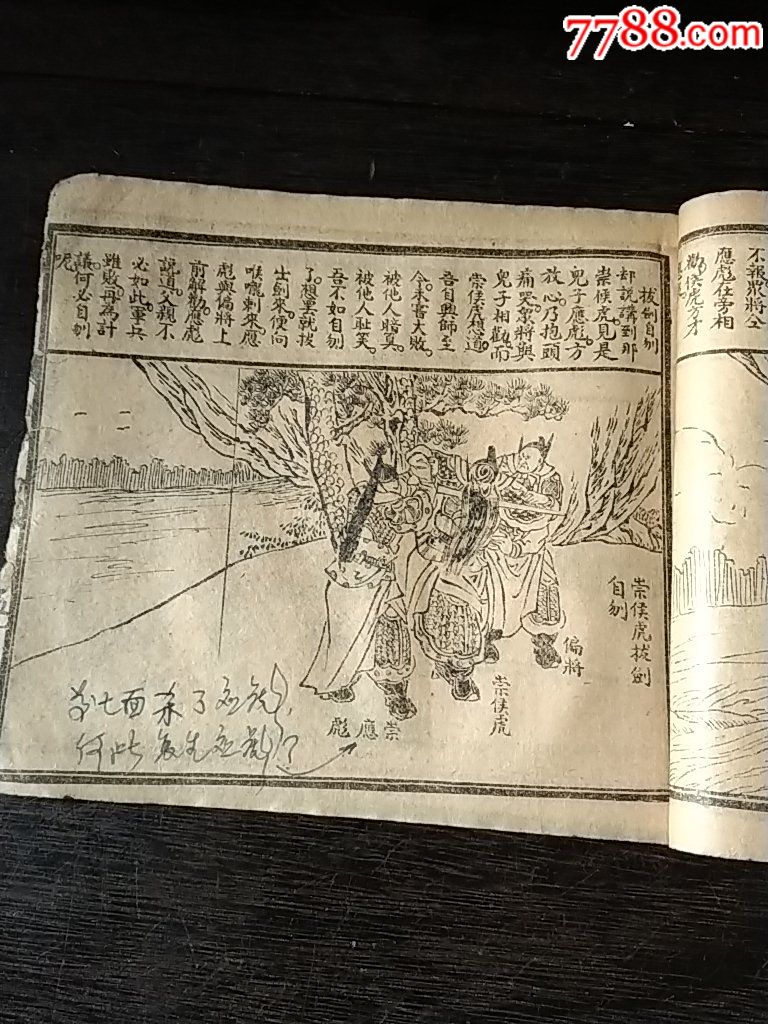 7788.com
不報麒將仝
應彪在旁相
勸侯虎方才
拔劍自刎
却說講到那
崇候虎見是
兒子應彪方
放心乃抱頭
痛哭衆將與
兒子相勸而
崇侯虎想道
吾自興師至
今未嘗大敗
被他人暗算
被他人耻笑
吾不如自刎
了想罷就拔
出劍來便向
喉嚨刺來應
彪與偏將上
前解勸應彪
說道父親不
必如此軍兵
雖敗再為計
議何必自刎
呢
崇侯虎拔劍
自刎
偏將
崇侯虎
崇應彪
第七面杀了应彪
何此复生应彪了